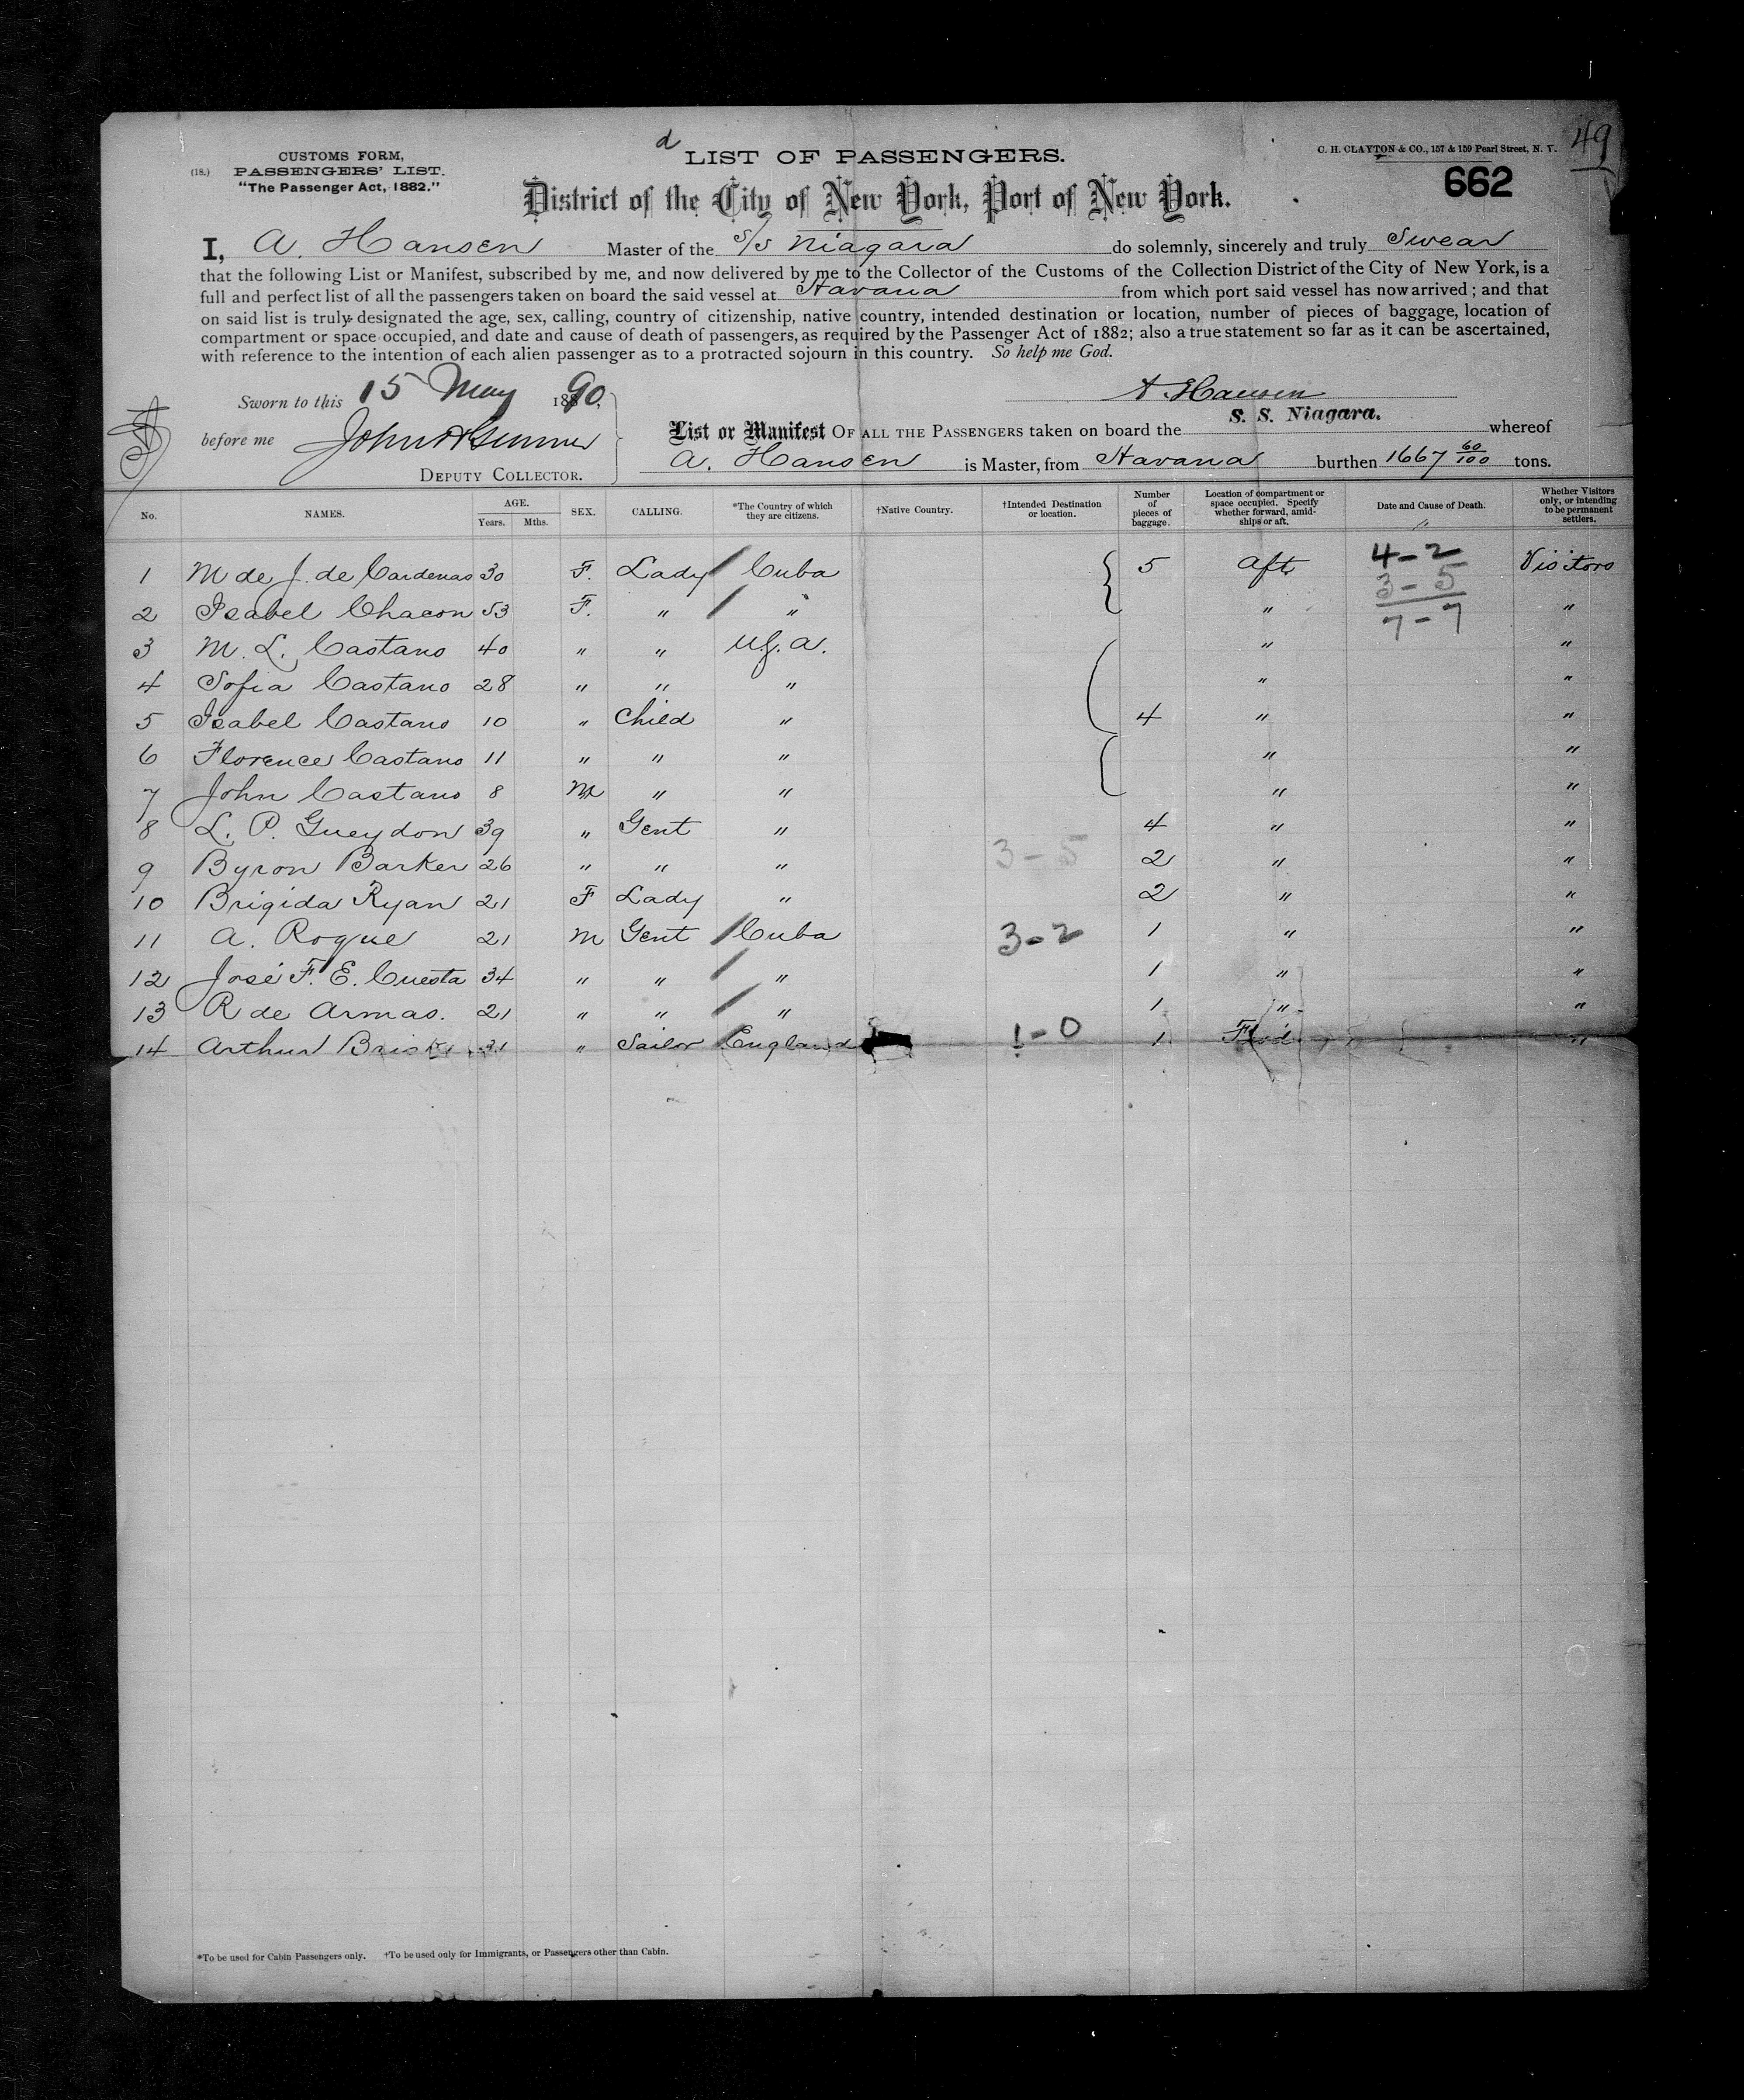 49
d
CUSTOMS FORM,
(18.) PASSENGERS' LIST.
"The Passenger Act, 1882."
LIST OF PASSENGERS.
C. H. CLAYTON & CO., 157 & 159 Pearl Street, N. Y.
662
District of the City of New York, Port of New York.
I, A. Hansen Master of the S/S Niagara do solemnly, sincerely and truly Swear
that the following List or Manifest, subscribed by me, and now delivered by me to the Collector of the Customs of the Collection District of the City of New York, is a
full and perfect list of all the passengers taken on board the said vessel at Havana from which port said vessel has now arrived; and that
on said list is truly designated the age, sex, calling, country of citizenship, native country, intended destination or location, number of pieces of baggage, location of
compartment or space occupied, and date and cause of death of passengers, as required by the Passenger Act of 1882; also a true statement so far as it can be ascertained,
with reference to the intention of each alien passenger as to a protracted sojourn in this country. So help me God.
Sworn to this 15 May 1890. A. Hansen
before me John
DEPUTY COLLECTOR.
List or Manifest OF ALL THE PASSENGERS taken on board the S. S. Niagara. whereof
A. Hansen is Master, from Havana burthen 1667 60/100 tons.
No. NAMES. AGE. Years. Mths. SEX. CALLING. *The Country of which they are citizens. †Native Country. †Intended Destination or location. Number of pieces of baggage. Location of compartment or space occupied. Specify whether forward, amidships or aft. Date and Cause of Death. Whether Visitors only, or intending to be permanent settlers.
1 M de J. de Cardenas 30 F. Lady Cuba 5 Aft 4-2 Visitors
3-5
2 Isabel Chacon 53 F. " " " "
7-7
3 M. L. Castano 40 " " U.S.A. " "
4 Sofia Castano 28 " " " " "
5 Isabel Castano 10 " Child " 4 " "
6 Florence Castano 11 " " " " "
7 John Castano 8 M " " " "
8 L. P. Gueydon 39 " Gent " 4 " "
9 Byron Barker 26 " " " 3-5 2 " "
10 Brigida Ryan 21 F Lady " 2 " "
11 A. Roque 21 M Gent Cuba 3-2 1 " "
12 José F. E. Cuesta 34 " " " 1 " "
13 R de Armas. 21 " " " 1 " "
14 Arthur 31 " Sailor England 1-0 1 Fwd "
*To be used for Cabin Passengers only. †To be used only for Immigrants, or Passengers other than Cabin.